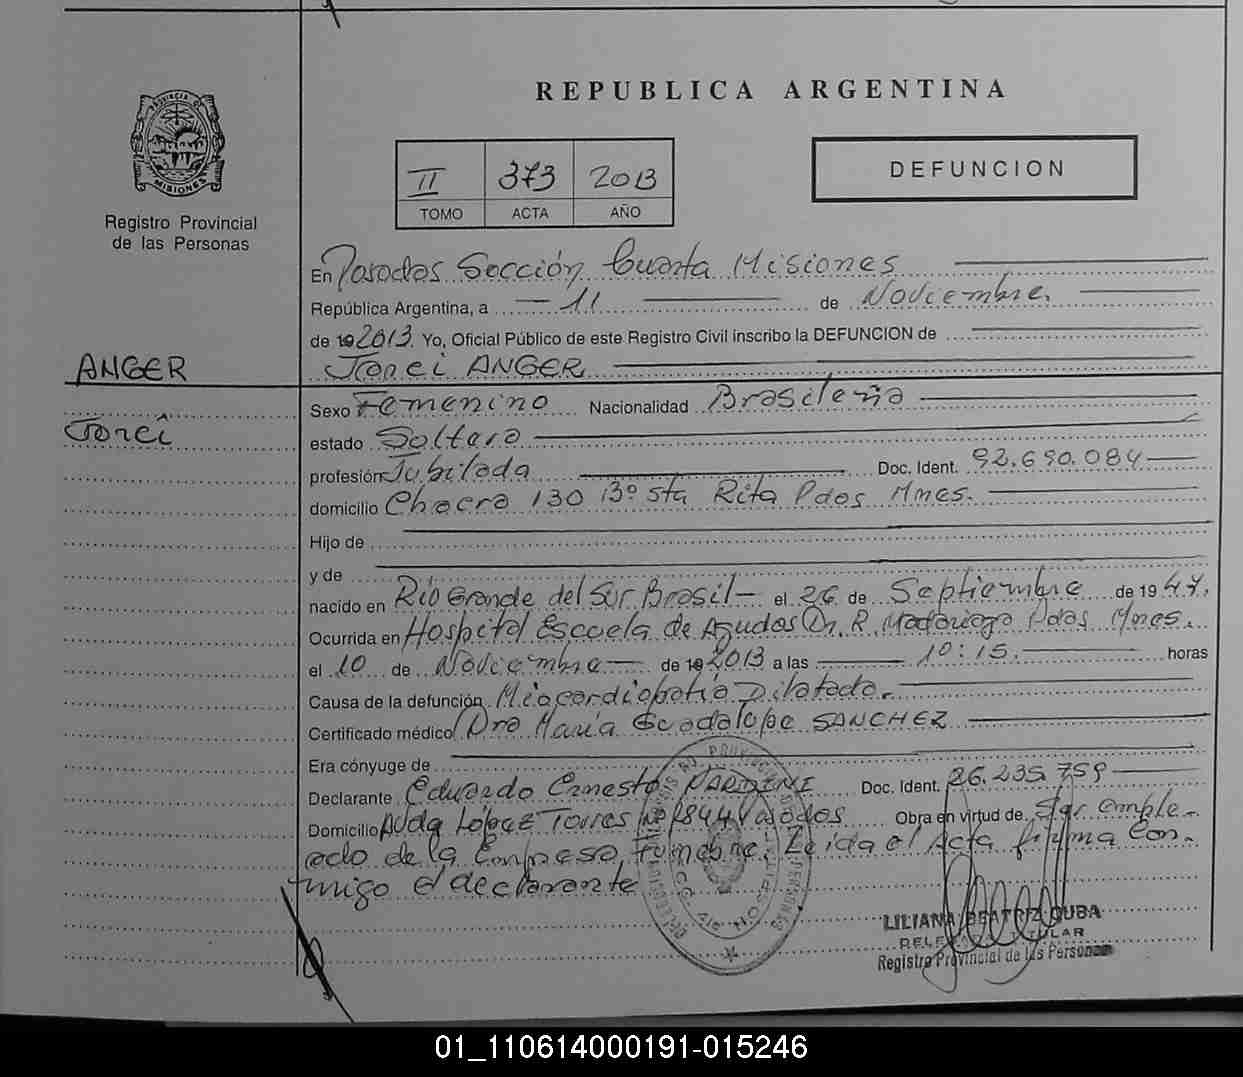 REPUBLICA ARGENTINA
PROVINCIA DE
MISIONES
II 373 2013
TOMO ACTA AÑO
DEFUNCION
Registro Provincial
de las Personas
En Posadas Sección Cuarta Misiones
República Argentina, a 11 de Noviembre.
de 19 2013. Yo, Oficial Público de este Registro Civil inscribo la DEFUNCION de
ANGER
Jorei ANGER
Sexo Femenino Nacionalidad Brasileña
Jorei
estado Soltera
profesión Jubilada Doc. Ident. 92.690.084
domicilio Chacra 130 Bº Sta Rita Pdas Mnes.
Hijo de
y de
nacido en Rio Grande del Sur Brasil el 26 de Septiembre de 19 47.
Ocurrida en Hospital Escuela de Agudos Dr. R. Madariaga Pdas Mnes.
el 10 de Noviembre de 19 2013 a las 10:15. horas
Causa de la defunción Miocardiopatia Dilatada.
Certificado médico Dra María Guadalupe SANCHEZ
Era cónyuge de
Declarante Eduardo Ernesto NARDINI Doc. Ident. 26.235.759
Domicilio Avda López Torres Nº 1844 Posadas Obra en virtud de Ser emple-
ado de la Empresa Funebre. Leida el Acta firma Con-
migo el declarante
LILIANA BEATRIZ CUBA
DELEGADA TITULAR
Registro Provincial de las Personas
01_110614000191-015246